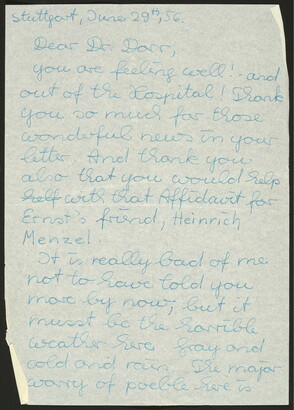 Stuttgart, June 29th, 56.
Dear Dr. Dorr,
you are feeling well! and
out of the Hospital! Thank
you so much for those
wonderful news in your
letter. And thank you
also that you would help
help with that Affidavit for
Ernst's friend, Heinrich
Menzel.
It is really bad of me
not to have told you
more by now, but it
musst be the horrible
weather here. Gray and
cold and rain. The major
worry of poeble here is